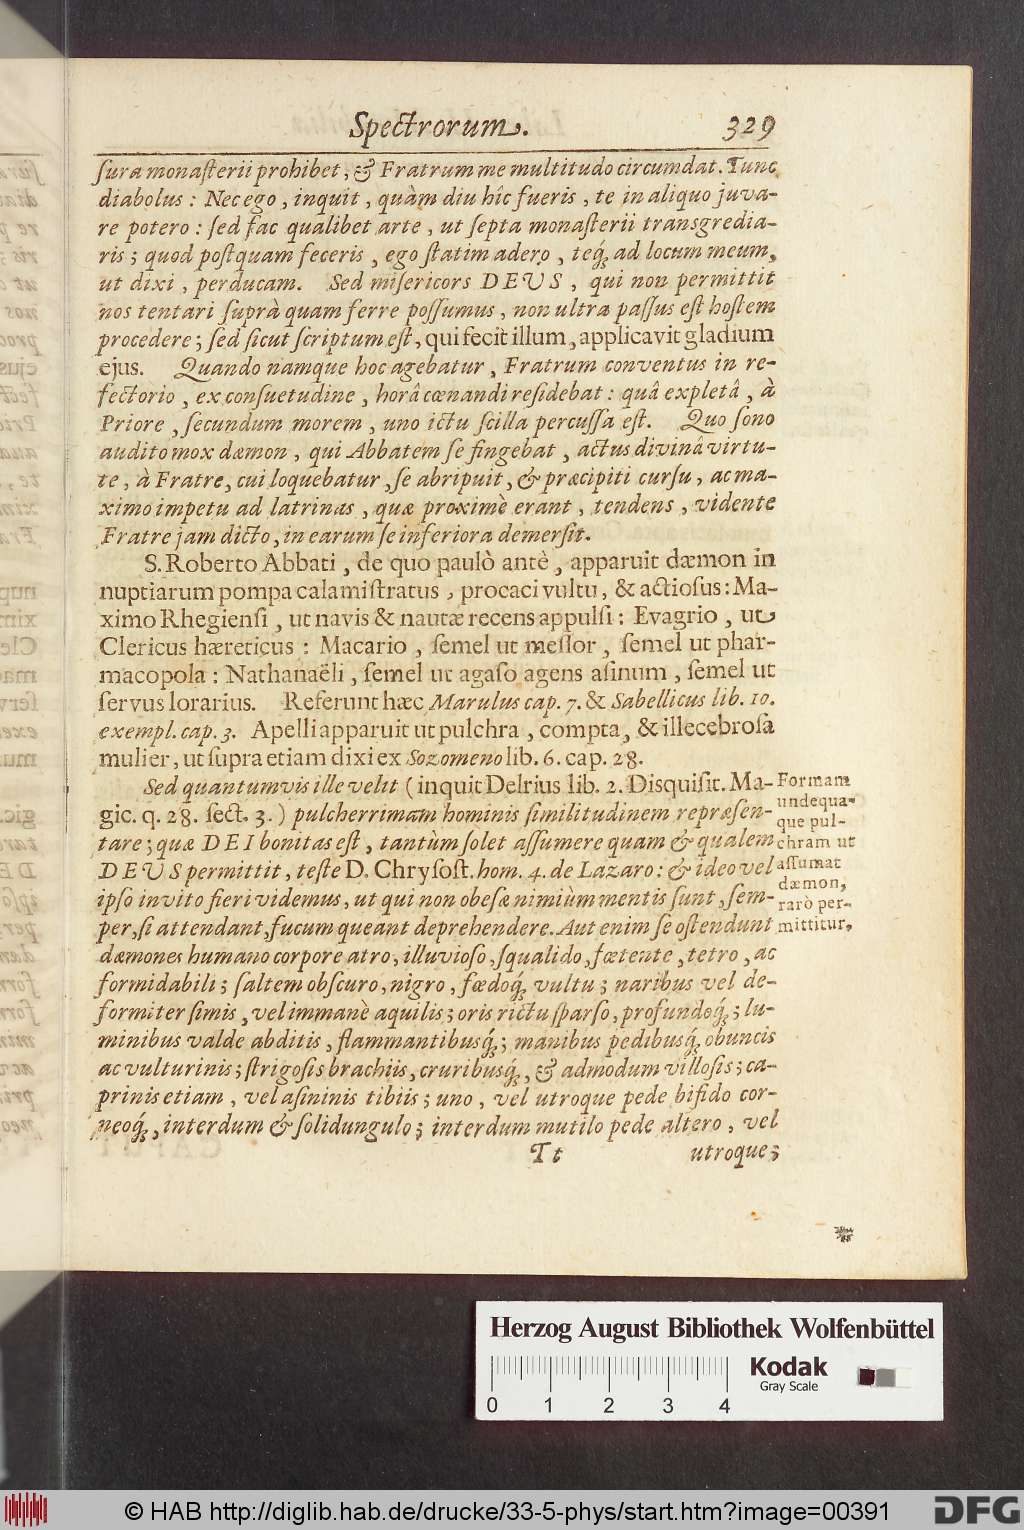 Spectrorum.
329
ſuræ monaſterii prohibet, & Fratrum me multitudo circumdat. Tunc
diabolus: Nec ego, inquit, quàm diu hîc fueris, te in aliquo juva-
re potero: ſed fac qualibet arte, ut ſepta monaſterii transgredia-
ris; quod poſtquam feceris, ego ſtatim adero, teq́; ad locum meum,
ut dixi, perducam. Sed miſericors DEUS, qui non permittit
nos tentari ſuprà quam ferre poſſumus, non ultra paſſus eſt hoſtem
procedere; ſed ſicut ſcriptum eſt, qui fecit illum, applicavit gladium
ejus. Quando namque hoc agebatur, Fratrum conventus in re-
fectorio, ex conſuetudine, horâ cœnandi reſidebat: quâ expletâ, à
Priore, ſecundum morem, uno ictu ſcilla percuſſa eſt. Quo ſono
audito mox dæmon, qui Abbatem ſe fingebat, actus divinâ virtu-
te, à Fratre, cui loquebatur, ſe abripuit, & præcipiti curſu, ac ma-
ximo impetu ad latrinas, quæ proximè erant, tendens, vidente
Fratre jam dicto, in earum ſe inferiora demerſit.
S. Roberto Abbati, de quo paulò antè, apparuit dæmon in
nuptiarum pompa calamiſtratus, procaci vultu, & actioſus: Ma-
ximo Rhegienſi, ut navis & nautæ recens appulſi: Evagrio, ut
Clericus hæreticus: Macario, ſemel ut meſſor, ſemel ut phar-
macopola: Nathanaëli, ſemel ut agaſo agens aſinum, ſemel ut
ſervus lorarius. Referunt hæc Marulus cap. 7. & Sabellicus lib. 10.
exempl. cap. 3. Apelli apparuit ut pulchra, compta, & illecebroſa
mulier, ut ſupra etiam dixi ex Sozomeno lib. 6. cap. 28.
Sed quantumvis ille velit (inquit Delrius lib. 2. Disquiſit. Ma-
gic. q. 28. ſect. 3.) pulcherrimam hominis ſimilitudinem repræſen-
tare; quæ DEI bonitas eſt, tantùm ſolet aſſumere quam & qualem
DEUS permittit, teſte D. Chryſoſt. hom. 4. de Lazaro: & ideo vel
ipſo invito fieri videmus, ut qui non obeſæ nimiùm mentis ſunt, ſem-
per, ſi attendant, fucum queant deprehendere. Aut enim ſe oſtendunt
dæmones humano corpore atro, illuvioſo, ſqualido, fœtente, tetro, ac
formidabili; ſaltem obſcuro, nigro, fœdoq́; vultu; naribus vel de-
formiter ſimis, vel immanè aquilis; oris rictu ſparſo, profundoq́;; lu-
minibus valde abditis, flammantibusq́;; manibus pedibusq́; obuncis
ac vulturinis; ſtrigoſis brachiis, cruribusq́;, & admodum villoſis; ca-
prinis etiam, vel aſininis tibiis; uno, vel utroque pede bifido cor-
neoq́;, interdum & ſolidungulo; interdum mutilo pede altero, vel
Tt
utroque;
Formam
undequa-
que pul-
chram ut
aſſumat
dæmon,
rarò per-
mittitur,
Herzog August Bibliothek Wolfenbüttel
Kodak
Gray Scale
0 1 2 3 4
© HAB http://diglib.hab.de/drucke/33-5-phys/start.htm?image=00391
DFG